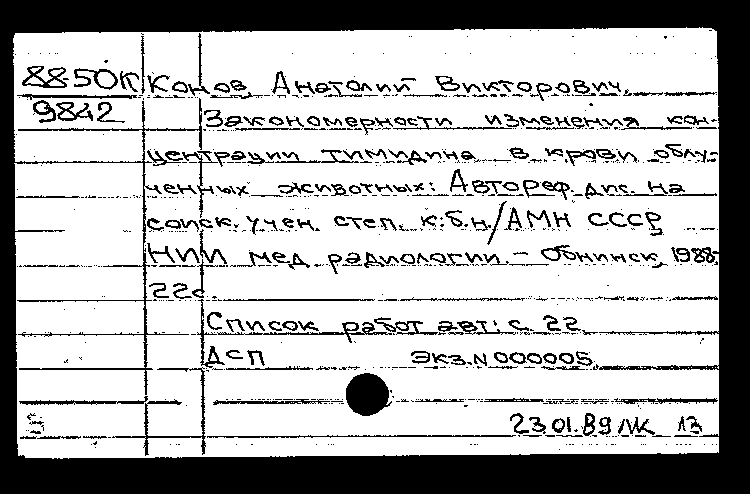 88-50К Конов Анатолий Викторович.
9842 Закономерности изменения кон-
центрации тимидина в крови облу-
ченных животных: Автореф. дис. на
соиск. учен. степ. к.б.н./АМН СССР
НИИ мед. радиологии. - Обнинск, 1988.
22с.
Список работ авт.: с. 22
ДСП экз. N 000005.
23.01.89 13